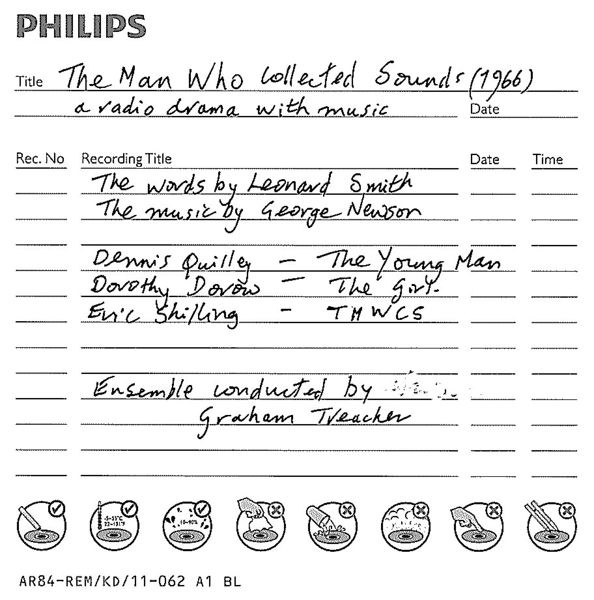 PHILIPS
Title The Man Who Collected Sounds (1966)
a radio drama with music Date
Rec. No Recording Title Date Time
The words by Leonard Smith
The music by George Newson
Dennis Quilley - The Young Man
Dorothy Dorow - The Girl.
Eric Shilling - TMWCS
Ensemble conducted by
Graham Treacher
-5-55°C
22-131°F
10-90%
AR84-REM/KD/11-062 A1 BL